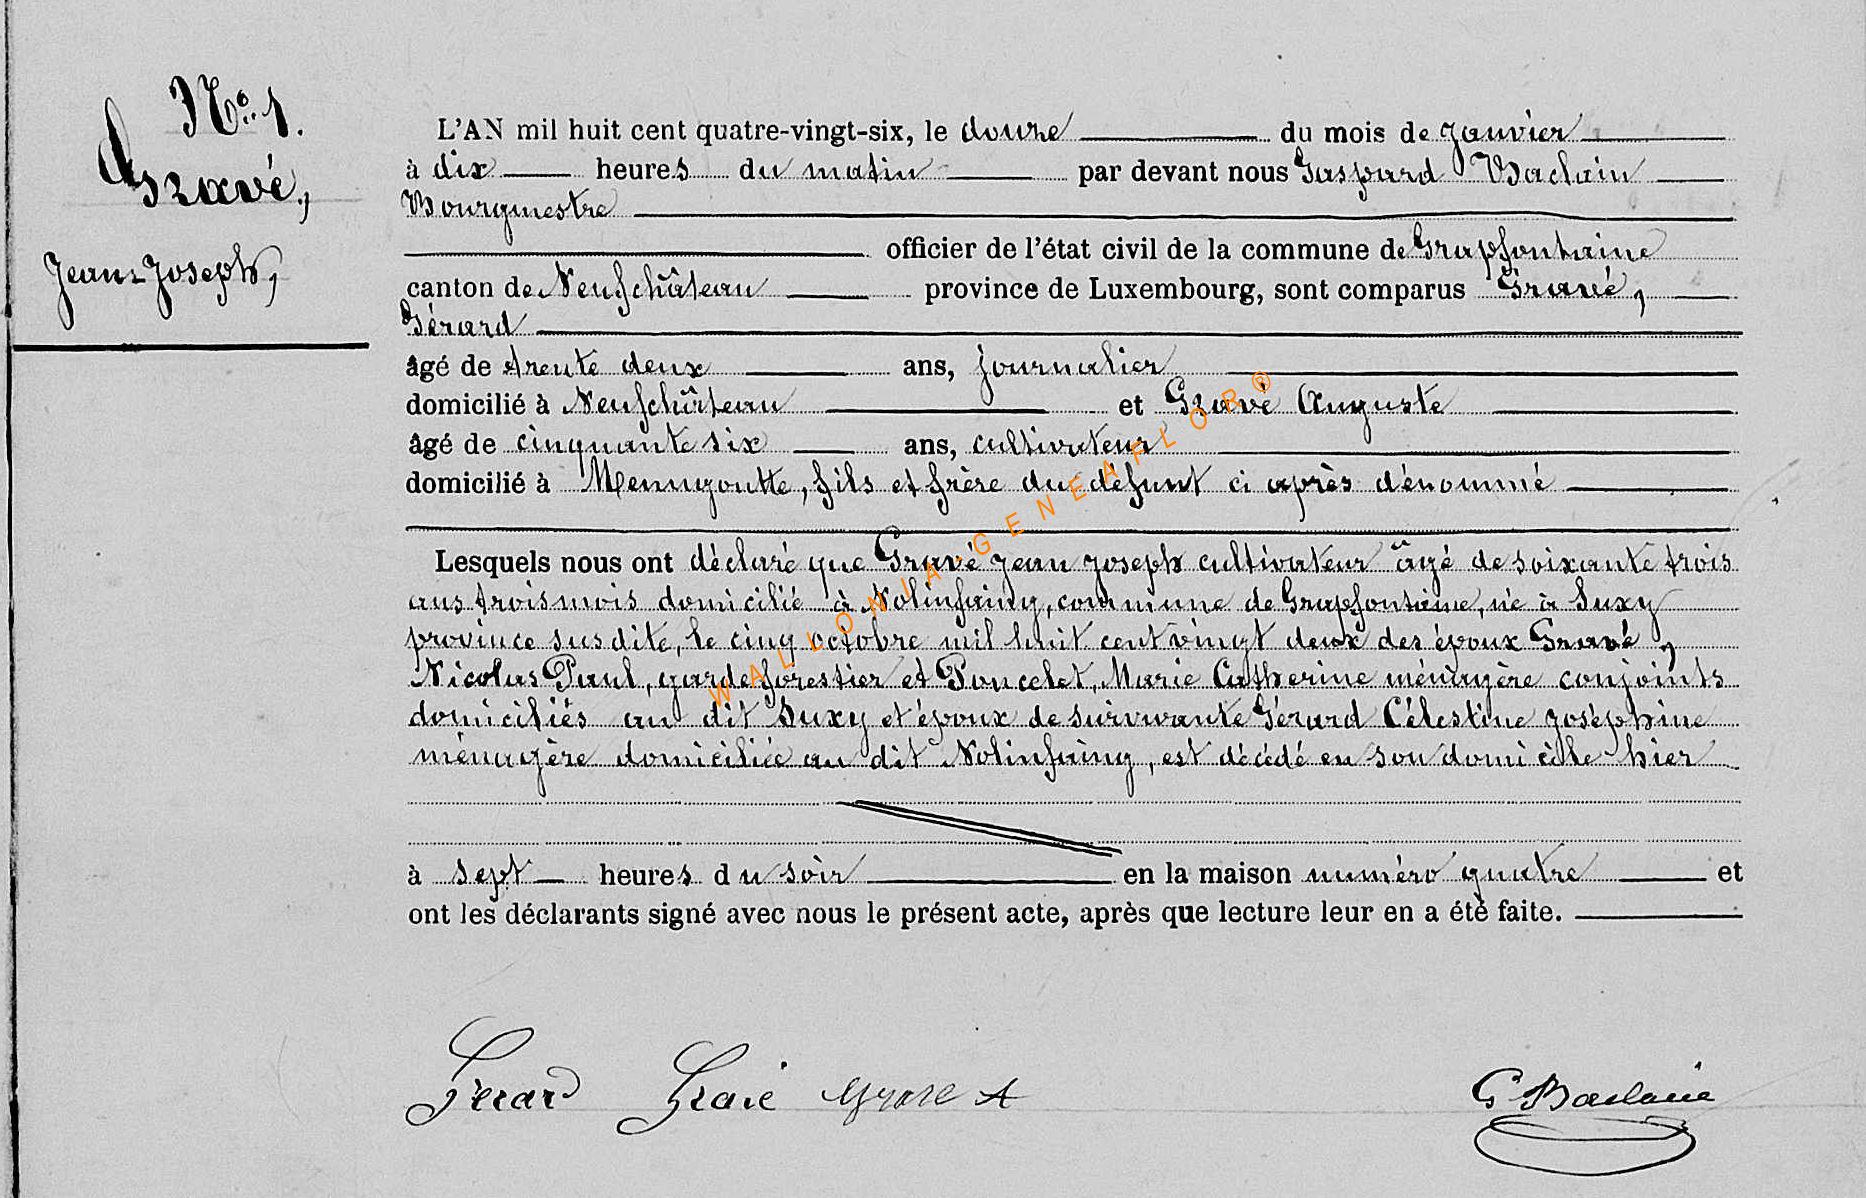 N° 1.
Gravé,
Jean-Joseph,
L'AN mil huit cent quatre-vingt-six, le douze du mois de Janvier
à dix heures du matin par devant nous Gaspard Baclain
Bourgmestre
officier de l'état civil de la commune de Grapfontaine
canton de Neufchâteau province de Luxembourg, sont comparus Gravé,
Gérard
âgé de trente deux ans, journalier
domicilié à Neufchâteau et Gravé Auguste
âgé de cinquante six ans, cultivateur
domicilié à Menugoutte, fils et frère du défunt ci après dénommé
Lesquels nous ont déclaré que Gravé Jean Joseph cultivateur âgé de soixante trois
ans trois mois domicilié à Nolinfaing, commune de Grapfontaine, né à Suxy
province susdite, le cinq octobre mil huit cent vingt deux des époux Gravé,
Nicolas Paul, garde forestier et Poncelet, Marie Catherine ménagère conjoints
domiciliés au dit Suxy et époux de survivante Gérard Célestine Joséphine
ménagère domiciliée au dit Nolinfaing, est décédé en son domicile hier
à sept heures du soir en la maison numéro quatre et
ont les déclarants signé avec nous le présent acte, après que lecture leur en a été faite.
Gerard Gravé Grave A G Baclain
WALLONIA-GENEAFLOR®